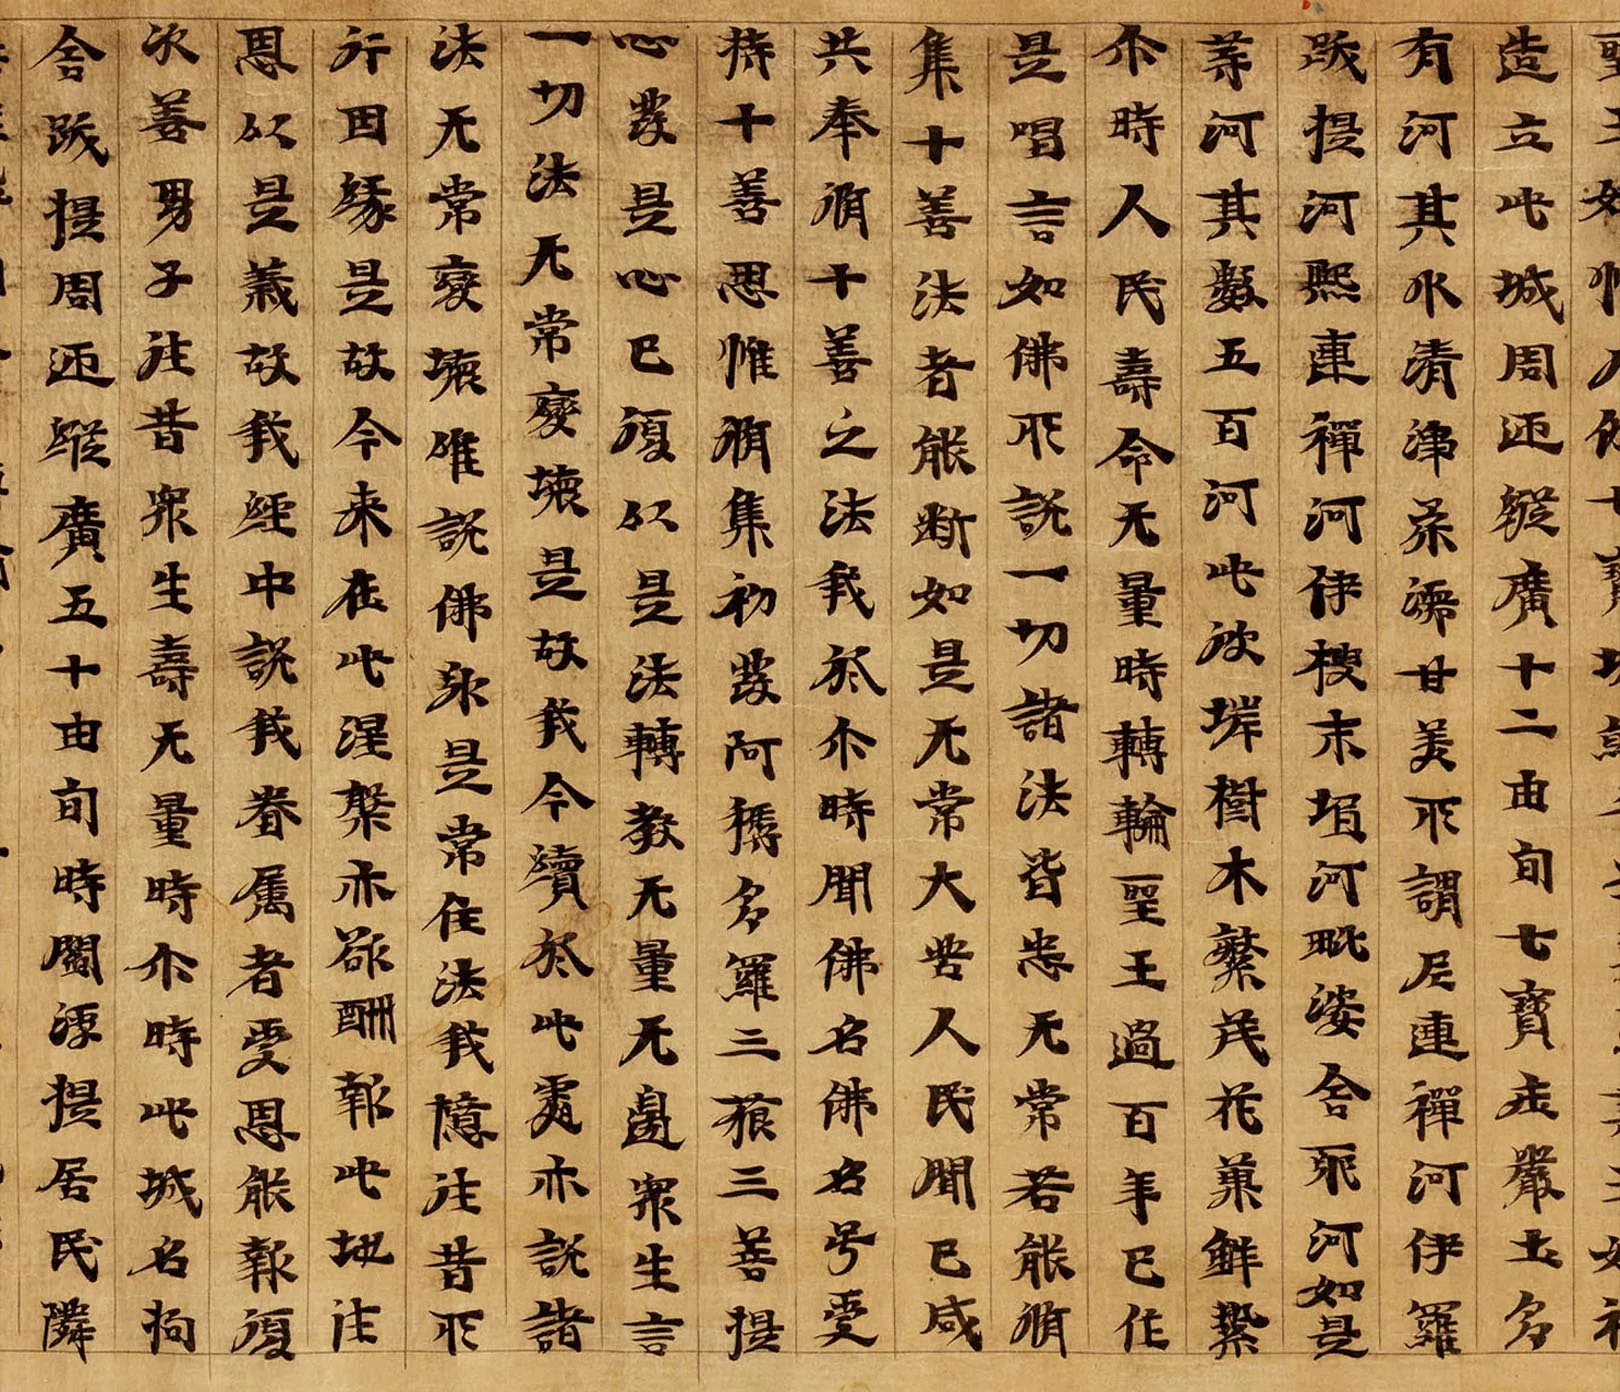 造立此城周迊縱廣十二由旬七寶莊嚴土多
有河其水清淨柔濡甘美所謂尼連禪河伊羅
跋提河熙連禪河伊梭末河毗婆舍耶河如是
等河其數五百河此彼堓樹木繁茂花菓鮮絜
尒時人民壽命无量時轉輪聖王過百年已作
是唱言如佛所說一切諸法皆悉无常若能脩
集十善法者能斷如是无常大苦人民聞已咸
共奉脩十善之法我於尒時聞佛名佛名号受
持十善思惟脩集初發阿耨多羅三藐三菩提
心發是心已復以是法轉教无量无邊眾生言
一切法无常變壞是故我今續於此處亦說諸
法无常變壞唯說佛身是常住法我憶往昔所
行因緣是故今来在此涅槃亦欲酬報此地往
恩以是義故我經中說我眷属者受恩能報復
次善男子往昔眾生壽无量時尒時此城名拘
舍跋提周迊縱廣五十由旬時閻浮提居民隣